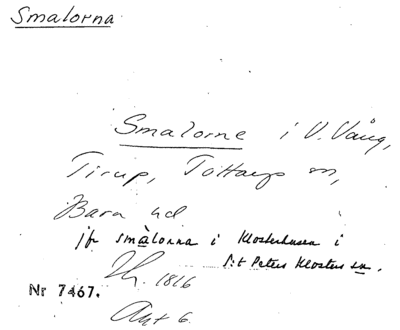 Smalorna
Smalorne i V. Vång,
Tirup, Tottarps sn,
Bara hd
jfr smålorna i Klosterhusen i
S:t Peters Klosters sn.
1816
Nr 7467.
Akt 6.